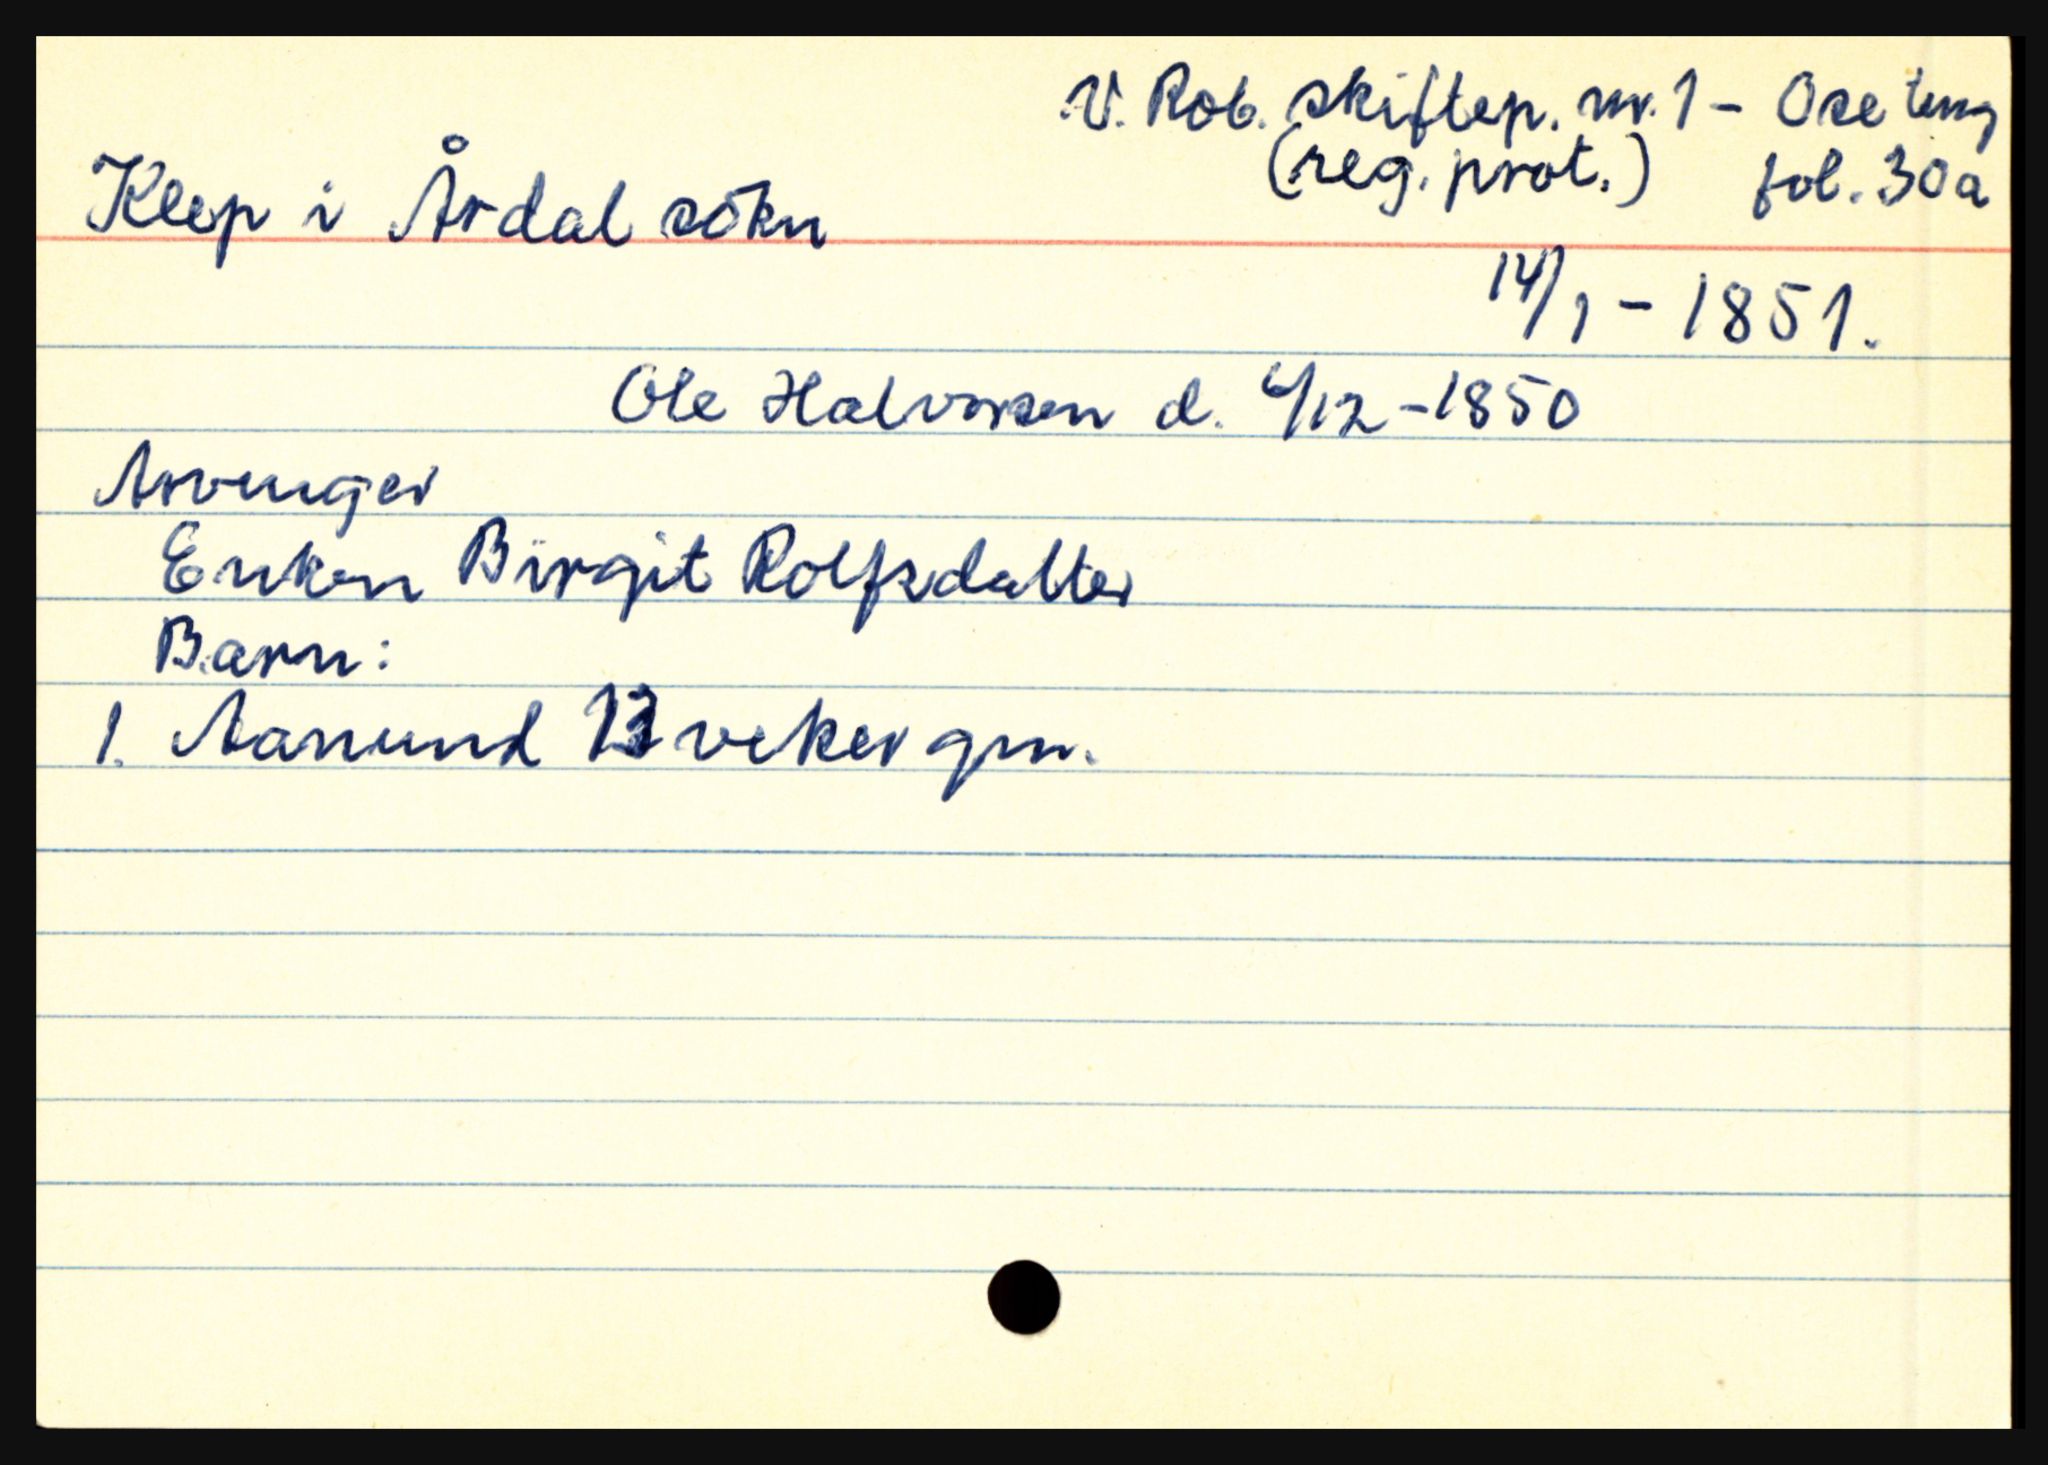 V. Rob. skiftep. nr. 1 - Ose ting
(reg. prot.) fol. 30a
Klep i Årdal sökn
14/1 - 1851.
Ole Halvorsen d. 6/12 - 1850
Arvinger
Enken Birgit Rolfsdatter
Barn:
1. Aanund 13 veker gm.